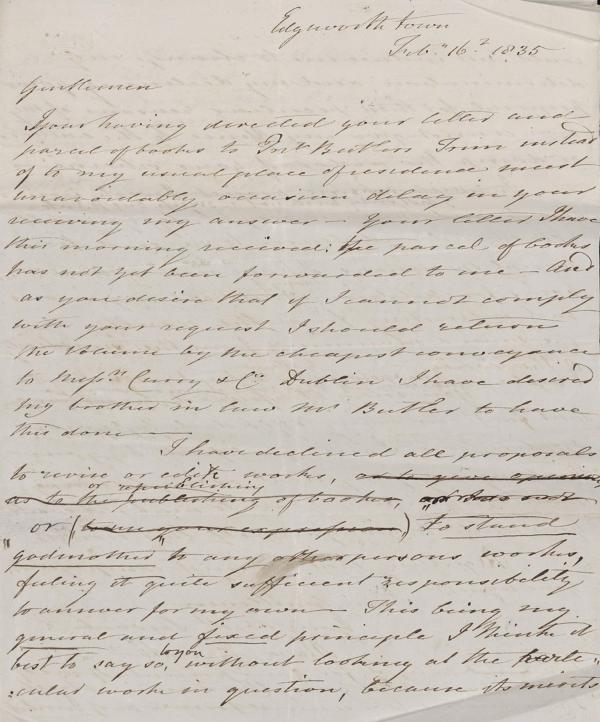 Edgeworth Town
Feb.y 16.th 1835
Gentlemen
Your having directed your letter and
parcel of books to Mr. Butlers Trim instead
of to my usual place of residence must
unavoidably occasion delay in your
receiving my answer — Your letter I have
this morning received: the parcel of books
has not yet been forwarded to me — And
as you desire that if I cannot comply
with your request I should return
the volume by the cheapest conveyance
to Mess.rs Curry & Co. Dublin I have desired
my brother in law Mr. Butler to have
this done —
I have declined all proposals
to revise or edite works, or to give opinions
or republishing
as to the publishing of books,
or (to use your expression) to stand
"godmother" to any other persons works,
feeling it quite sufficient responsibility
to answer for my own — This being my
general and fixed principle I think it
best to say so, to you without looking at the parti-
:cular work in question, because its merits